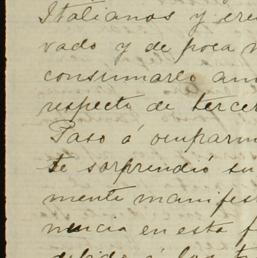 Italianos y cre
vado y de poca
consumarlo an
respecto de tercer
Paso á ocuparm
te sorprendió su
mente manifes
nuncia en esta f